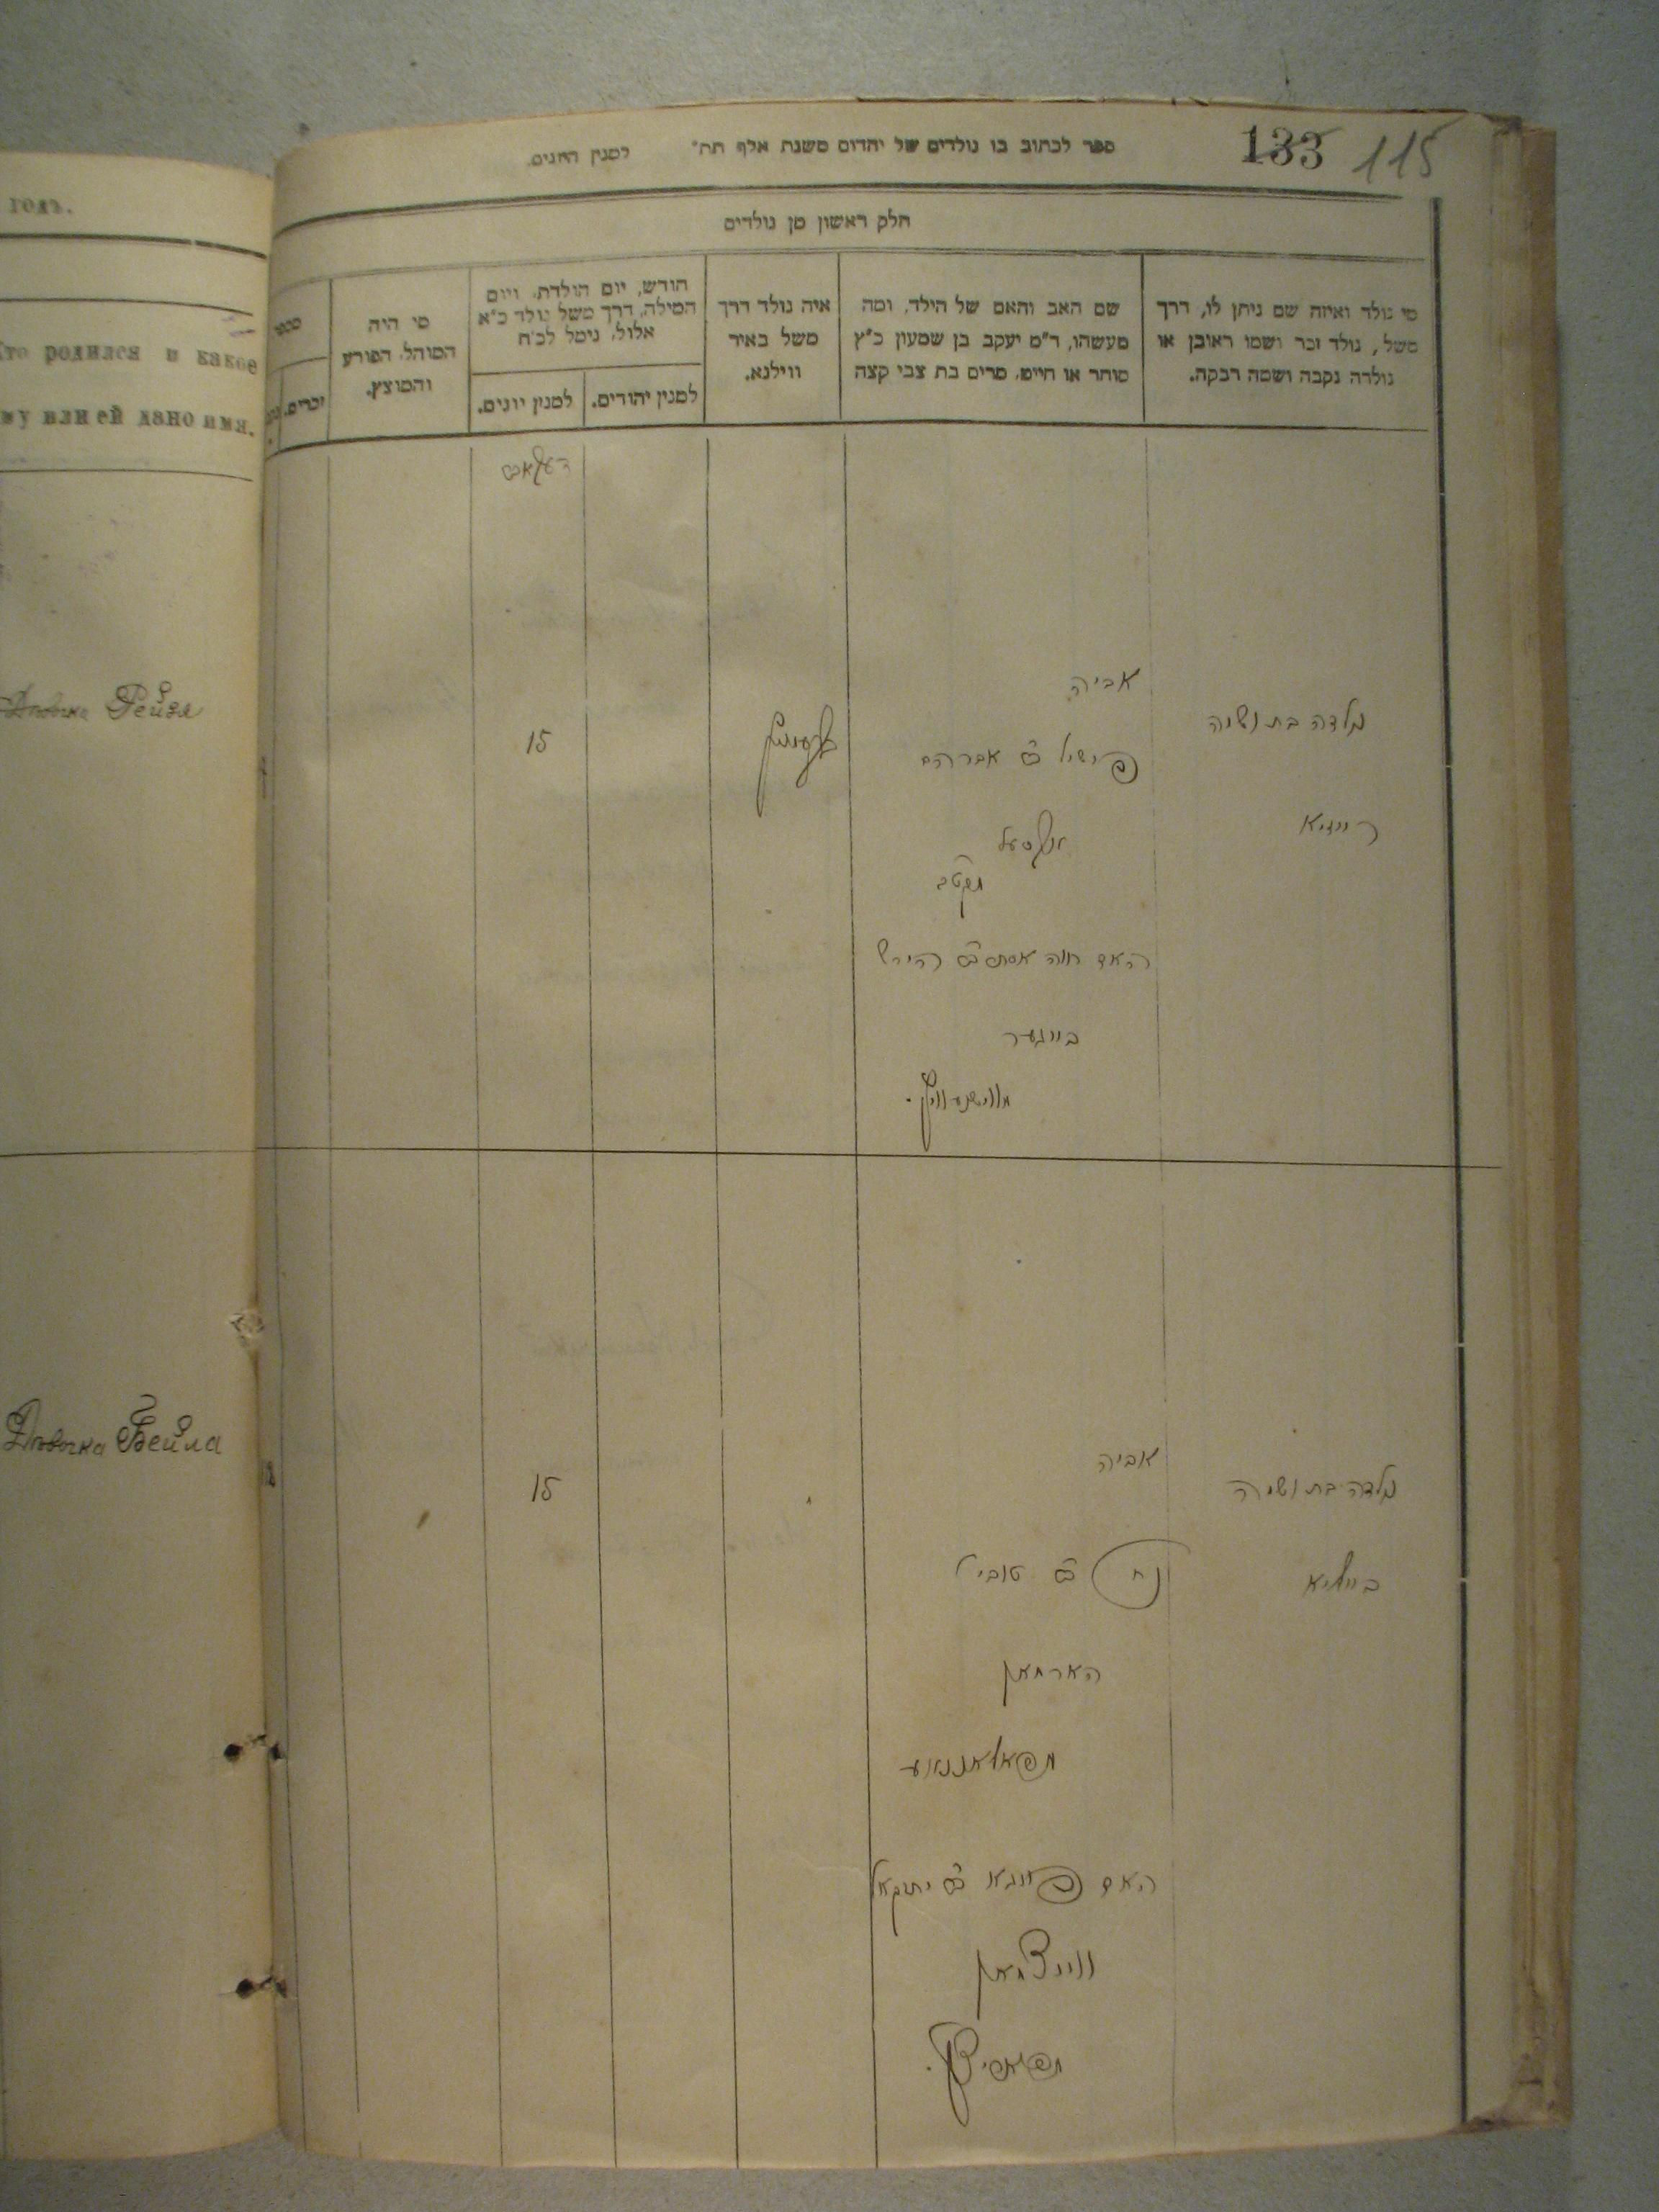 133 115
ספר לכתוב בו נולדים של יהדום משנת אלף תת״ למנין הח׳נים.
חלק ראשון מן נולדים
מי נולד ואיזה שם ניתן לו, דרך
משל, נולד זכר ושמו ראובן או
נולדה נקבה ושמה רבקה.
שם האב והאם של הילד, ומה
מעשהו, ר״מ יעקב בן שמעון כ״ץ
סוחר או חייט, מרים בת צבי קצה
איה נולד דרך
משל באיר
ווילנא.
חודש, יום הולדת, ויום
המילה, דרך משל נולד כ״א
אלול, נימל לכ״ח
למנין יהודים.
למנין יונים.
מי היה
המוהל, הפורע
והמוצץ.
מספר
זכרים.
годъ.
Кто родился и какое
ему или ей дано имя.
דעקאבר
אביה
נולדה בת ושמה
פישיל ב״ר אברהם
15
Рейзя
רייזיא
האם חוה אסתר ב״ר הירש
בייגער
אביה
נולדה בת ושמה
15
Девочка Бейла
נח ב״ר טובי׳
ביילא
הארמאן
האם
ווייצמאן